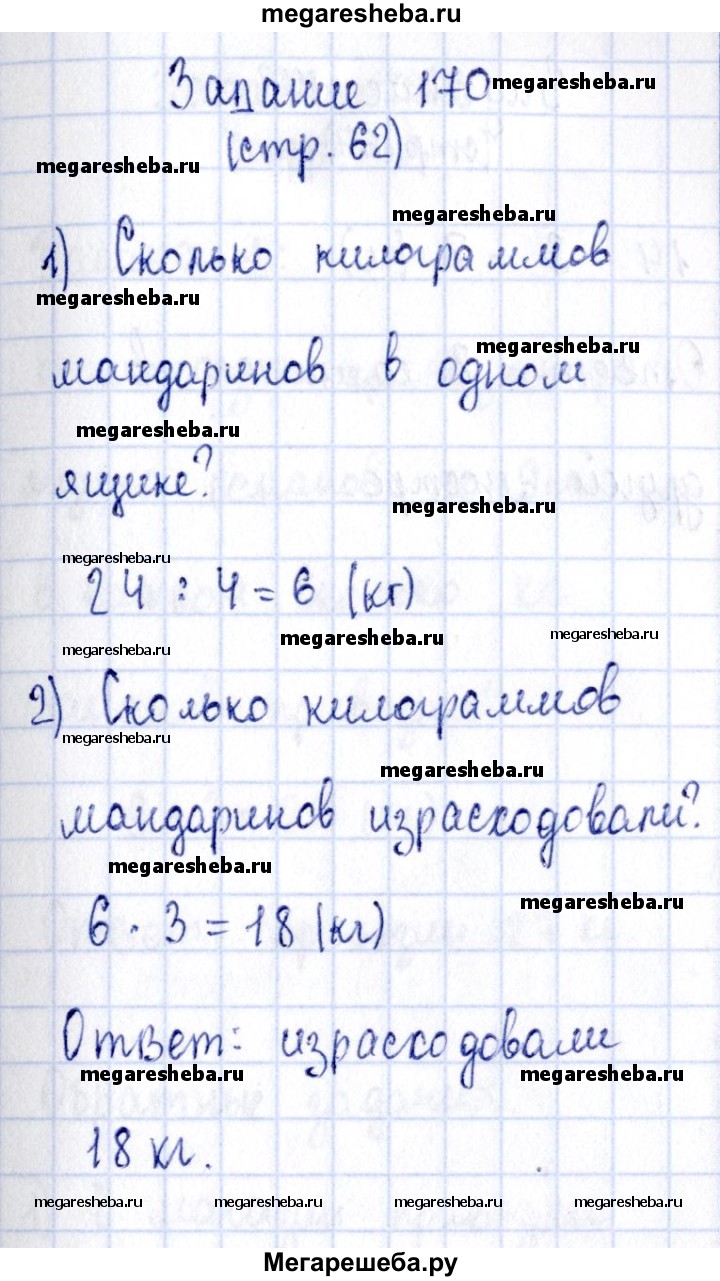 megaresheba.ru
Задание 170 megaresheba.ru
(стр. 62)
megaresheba.ru
megaresheba.ru
1) Сколько килограммов
megaresheba.ru
megaresheba.ru
мандаринов в одном
megaresheba.ru
ящике?
megaresheba.ru
megaresheba.ru
24 : 4 = 6 (кг)
megaresheba.ru megaresheba.ru
megaresheba.ru
2) Сколько килограммов
megaresheba.ru
megaresheba.ru
мандаринов израсходовали?
megaresheba.ru
megaresheba.ru
6 · 3 = 18 (кг)
Ответ: израсходовали
megaresheba.ru megaresheba.ru
18 кг.
megaresheba.ru megaresheba.ru megaresheba.ru megaresheba.ru
Мегарешеба.ру